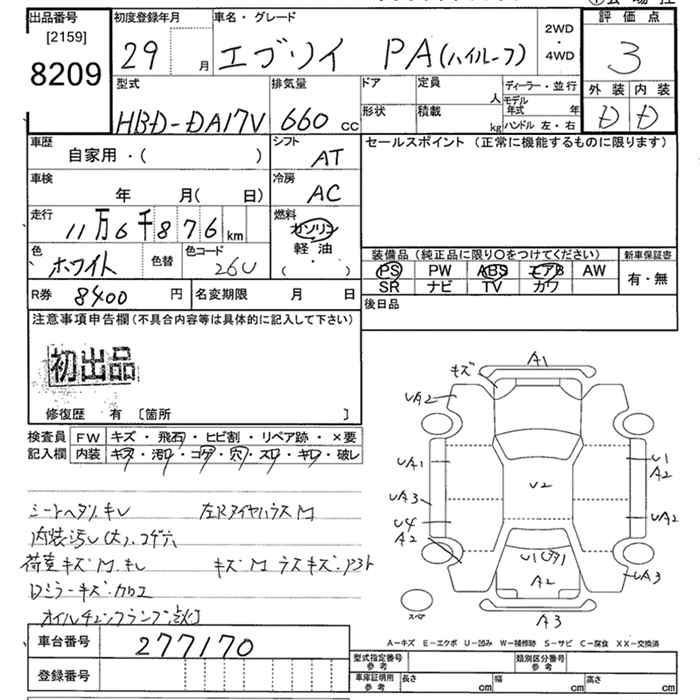 出品番号 初度登録年月 車名・グレード 評価点
[2159]
8209
29 月 エブリイ PA(ハイルーフ) 2WD・4WD 3
型式 排気量 ドア 定員 人 ディーラー・並行 外装 内装
HBD-DA17V 660 cc 形状 積載 kg モデル年式 年 ハンドル 左・右 D D
車歴 シフト セールスポイント (正常に機能するものに限ります)
自家用・( ) AT
車検 冷房
年 月( 日) AC
走行 燃料
11万6千876 km ガソリン
軽油
( )
色 色替 色コード
ホワイト 26U
装備品 (純正品に限り○をつけてください) 新車保証書
PS PW ABS エアB AW 有・無
SR ナビ TV カワ
R券 8400 円 名変期限 月 日 後日品
注意事項申告欄 (不具合内容等は具体的に記入して下さい)
初出品
修復歴 有 [箇所 ]
検査員 FW キズ・飛石・ヒビ割・リペア跡・×要
記入欄 内装 キズ・汚れ・コゲ・穴・スレ・キレ・破レ
シートヘタリ.キレ 左Rタイヤハウス M
内装汚レ(大).コゲ穴
荷室キズ M.キレ キズ M ラスキズ.
Dミラーキズ.
点灯
キズ A1
UA2
UA1 U1
A2
UA3 U2 UA2
U4
A2 U1
A2 UA3
スペア A3
A-キズ E-エクボ U-凹み W-補修跡 S-サビ C-腐食 XX-交換済
車台番号 277170
登録番号
型式指定番号 参考 類別区分番号 参考
車庫証明用 参考 長さ cm 幅 cm 高さ cm